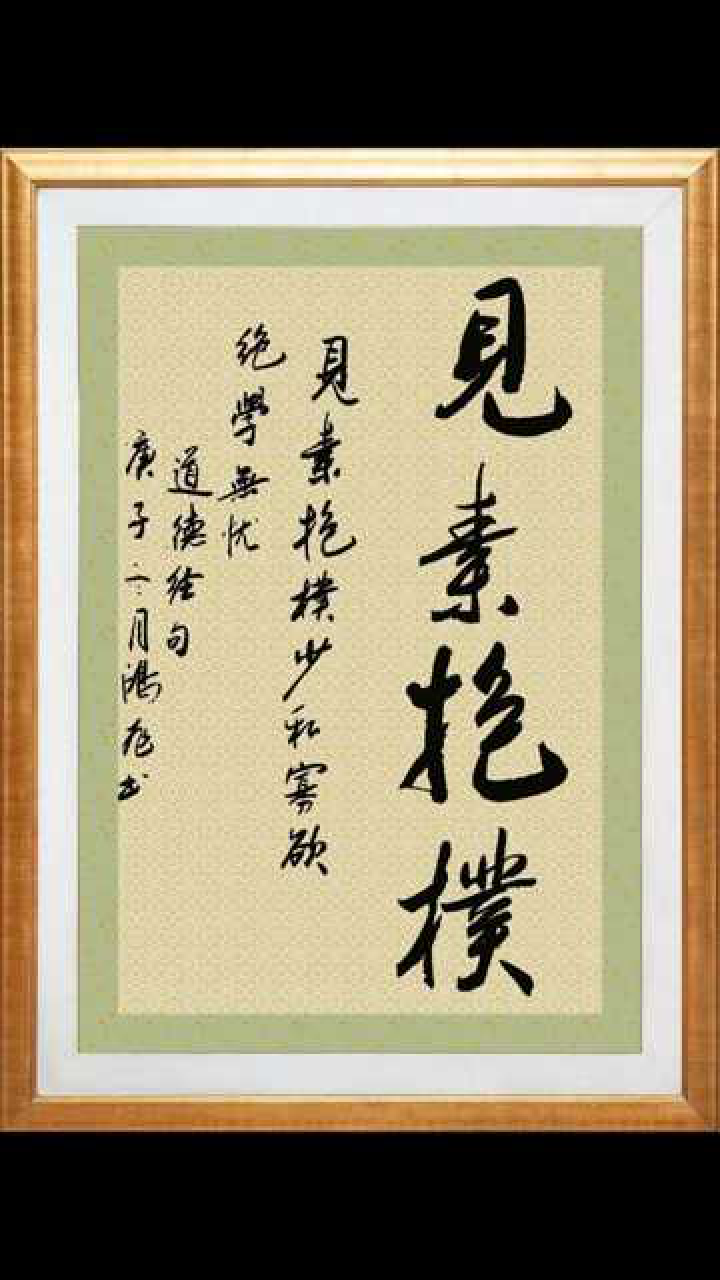 見素抱樸
見素抱樸少私寡欲
绝學無忧
道德经句
庚子六月鴻